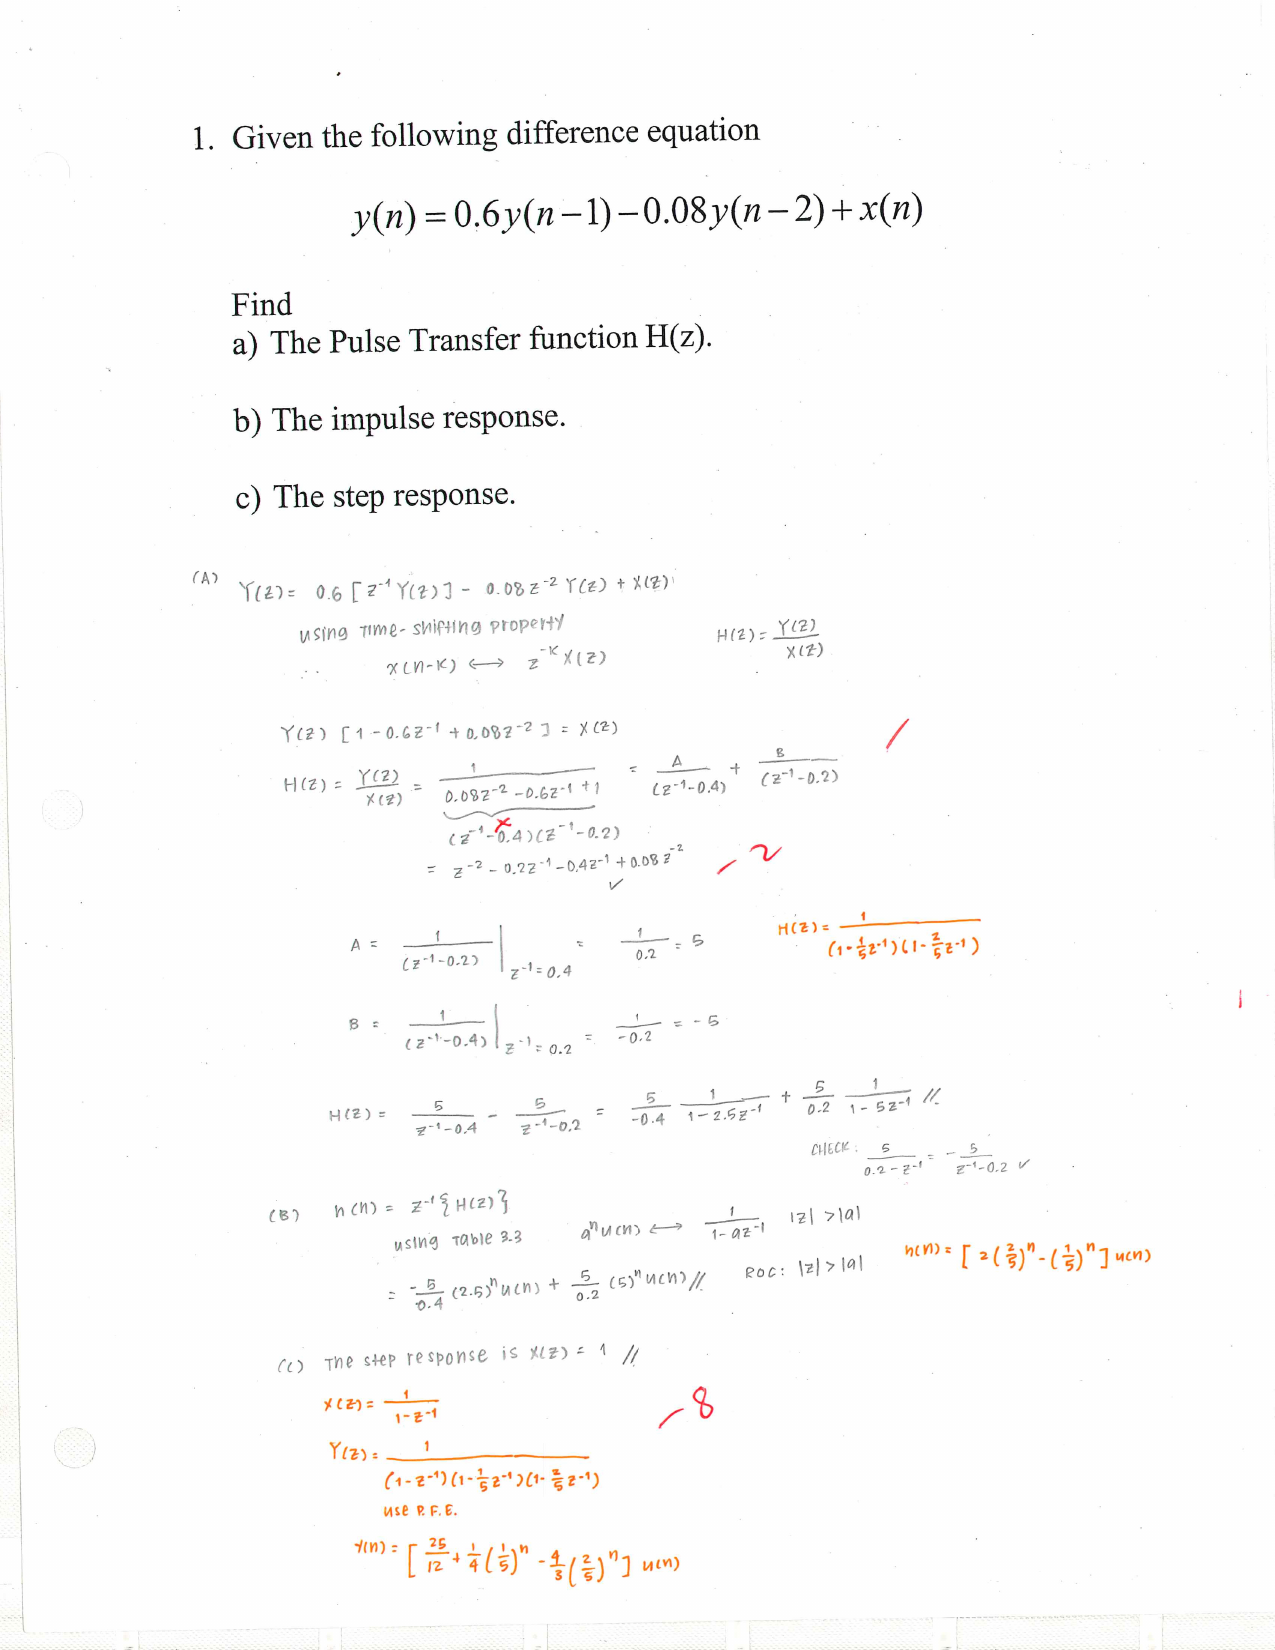 1. Given the following difference equation
y(n) = 0.6y(n−1)−0.08y(n−2)+x(n)
Find
a) The Pulse Transfer function H(z).
b) The impulse response.
c) The step response.
(A) Y(z) = 0.6 [z⁻¹Y(z)] - 0.08z⁻² Y(z) + X(z)
using Time-shifting property
∴ x(n-k) ⟷ z⁻ᵏ X(z)
H(z) = Y(z)/X(z)
Y(z) [1 - 0.6z⁻¹ + 0.08z⁻²] = X(z)
/
H(z) = Y(z)/X(z) = 1/(0.08z⁻² - 0.6z⁻¹ + 1) = A/(z⁻¹-0.4) + B/(z⁻¹-0.2)
(z⁻¹-0.4)(z⁻¹-0.2) ×
= z⁻² - 0.2z⁻¹ - 0.4z⁻¹ + 0.08z⁻² ✓
-2
A = 1/(z⁻¹-0.2) | z⁻¹=0.4 = 1/0.2 = 5
H(z) = 1/((1-1/5z⁻¹)(1-2/5z⁻¹))
B = 1/(z⁻¹-0.4) | z⁻¹=0.2 = 1/-0.2 = -5
H(z) = 5/(z⁻¹-0.4) - 5/(z⁻¹-0.2) = 5/-0.4 1/(1-2.5z⁻¹) + 5/0.2 1/(1-5z⁻¹) //
CHECK: 5/(0.2-z⁻¹) = -5/(z⁻¹-0.2) ✓
(B) h(n) = z⁻¹{H(z)}
using Table 3.3 aⁿu(n) ⟷ 1/(1-az⁻¹) |z| > |a|
= -5/0.4 (2.5)ⁿu(n) + 5/0.2 (5)ⁿu(n) // ROC: |z| > |a|
h(n) = [2(2/5)ⁿ - (1/5)ⁿ] u(n)
(C) The step response is X(z) = 1 //
X(z) = 1/(1-z⁻¹)
-8
Y(z) = 1/((1-z⁻¹)(1-1/5z⁻¹)(1-2/5z⁻¹))
use P.F.E.
y(n) = [25/12 + 1/4(1/5)ⁿ - 4/3(2/5)ⁿ] u(n)